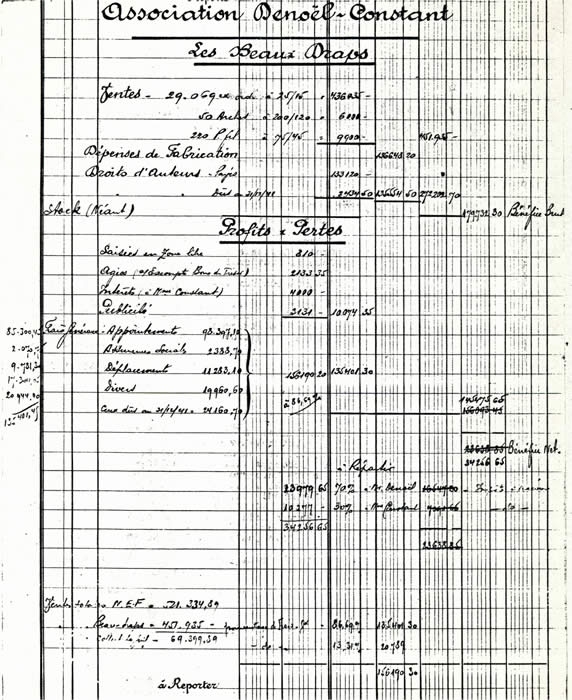 Association Denoël-Constant
Les Beaux Draps
Ventes - 29.069 ex ordi à 25/15 = 436035 -
50 Arches à 200/120 = 6000 -
220 P. fil à 75/45 = 9900 - 451.935 -
Dépenses de Fabrication 136643 20
Droits d'Auteurs - Payés 133120 -
" Dûs au 31/12/41 2434 50 135554 50 272202 70
Stock (Néant) 179732 30 Bénéfice Brut
Profits & Pertes
Saisies en Zone libre 810 -
Agios (s/ Escompte Bons du Trésor) 2133 35
Intérêts (à Mme Constant) 4000 -
Publicité 3131 - 10074 35
Frais Généraux - Appointements 98.397,10
2.070, Assurances Sociales 2388,70
Déplacement 11283,10 156190 20 135401 30
Divers 19960,60
20.944, Ceux dûs au 31/12/41 = 24160,70 à 86,69% 145475 65
Bénéfice Net.
34256 65
à Répartir
23979 65 70% - M. Denoël
10277 - 30% - Mme Constant - do -
34256 65
Ventes totales N.E.F = 521.334,89
Beaux-draps = 451.935 - 86,69% 135401 30
69.399,89 - do - 13,31% 20789
156190 30
à Reporter